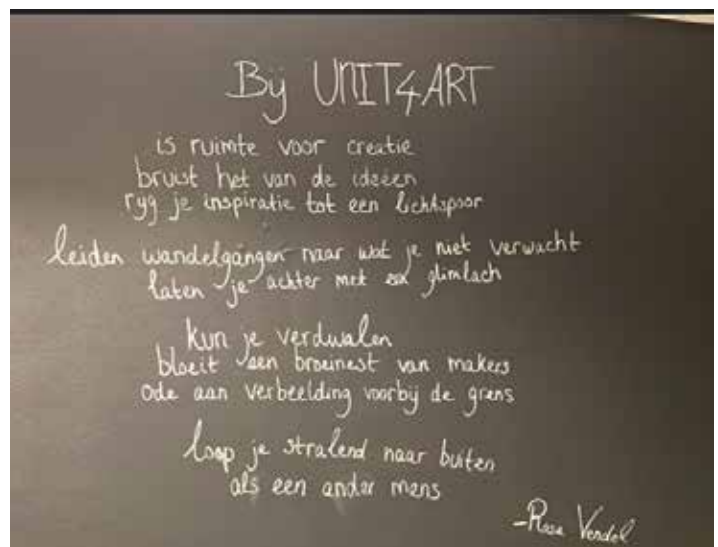 Bij UNIT4ART
is ruimte voor creatie
bruist het van de ideeën
ryg je inspiratie tot een lichtspoor
leiden wandelgangen naar wat je niet verwacht
laten je achter met een glimlach
kun je verdwalen
bloeit een broeinest van makers
ode aan verbeelding voorbij de grens
loop je stralend naar buiten
als een ander mens
-Rosa Vendel